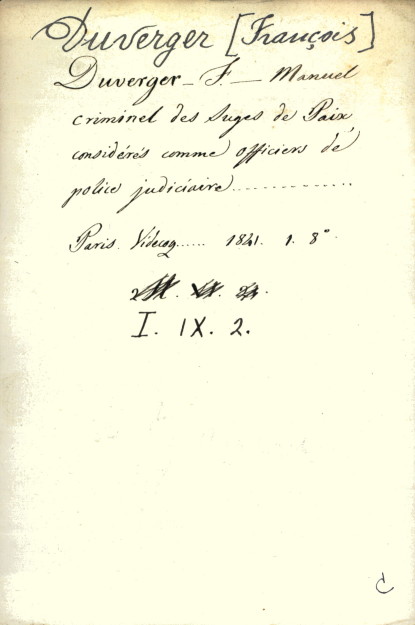 Duverger [François]
Duverger_ F. _ Manuel
criminel des Juges de Paix,
considérés comme officiers de
police judiciaire..............
Paris. Videcoq...... 1841. 1. 8°.
I. IX. 2.
C